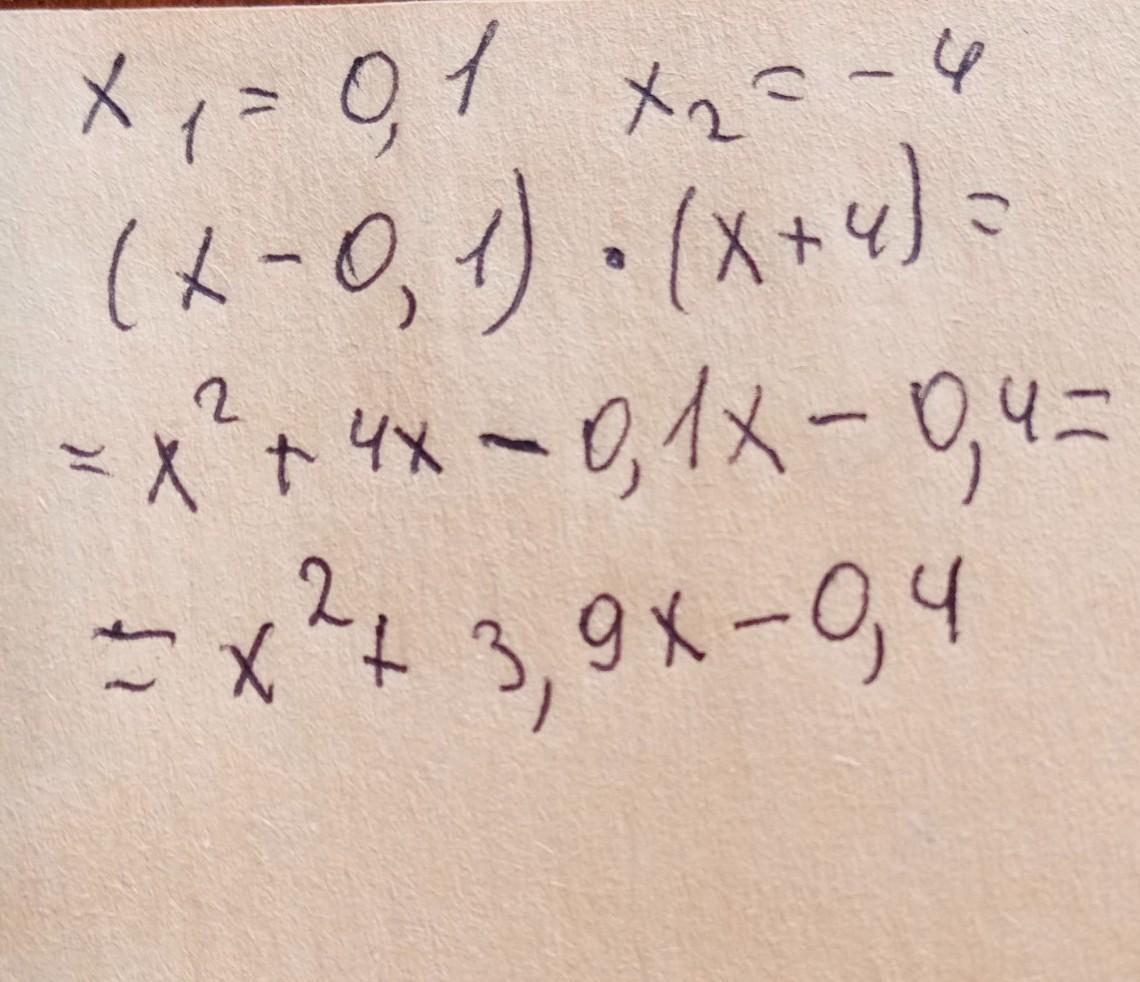 x₁ = 0,1 x₂ = - 4
(x - 0,1) · (x + 4) =
= x² + 4x - 0,1x - 0,4 =
= x² + 3,9x - 0,4